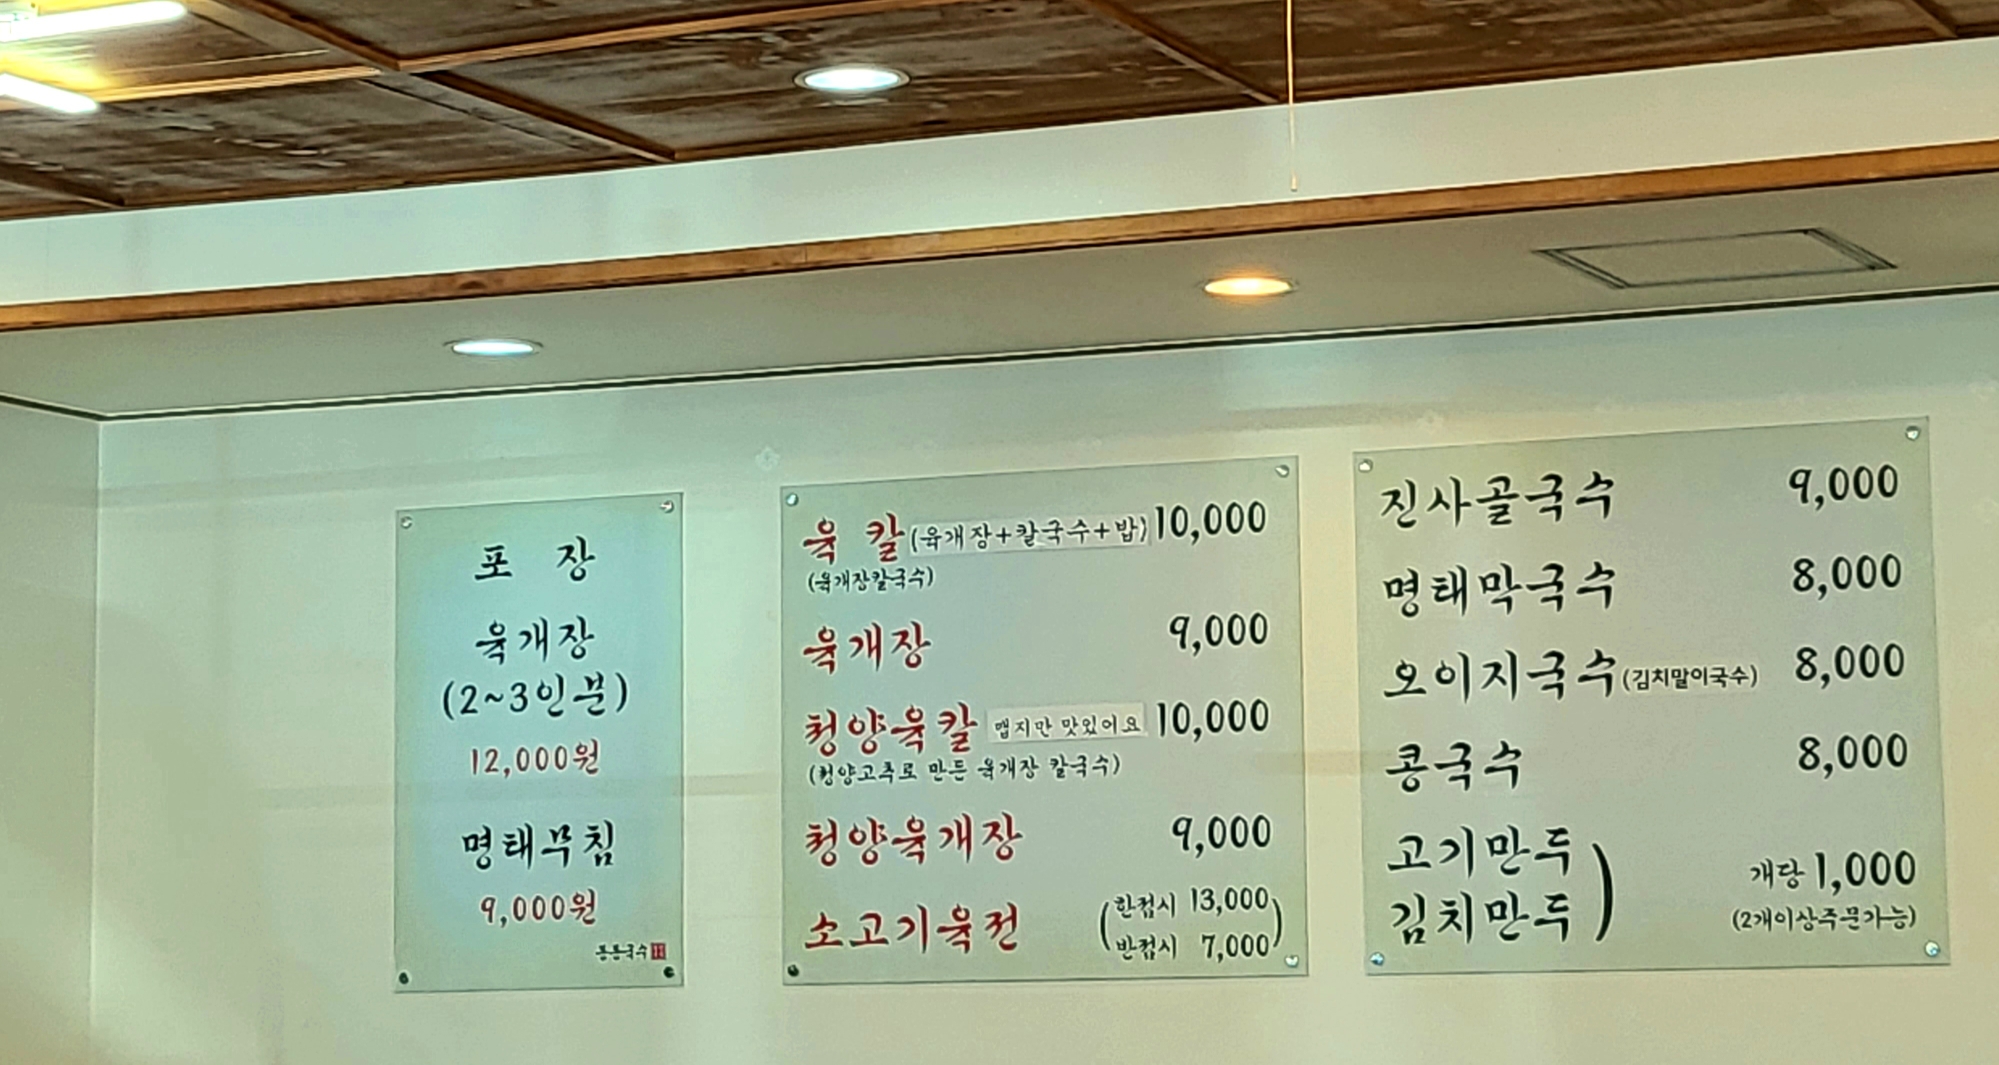 포 장
육개장
(2~3인분)
12,000원
명태무침
9,000원
육 칼(육개장+칼국수+밥) 10,000
(육개장칼국수)
육개장 9,000
청양육칼 맵지만 맛있어요 10,000
(청양고추로 만든 육개장 칼국수)
청양육개장 9,000
소고기육전 (한접시 13,000
반접시 7,000)
진사골국수 9,000
명태막국수 8,000
오이지국수(김치말이국수) 8,000
콩국수 8,000
고기만두
김치만두) 개당 1,000
(2개이상주문가능)